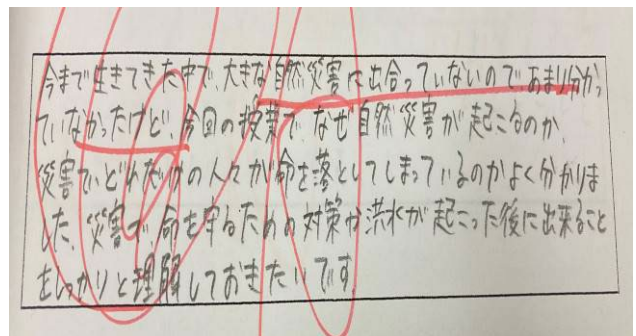 今まで生きてきた中で、大きな自然災害に出合っていないので、あまり分かっ
ていなかったけど、今回の授業で、なぜ自然災害が起こるのか、
災害でいどれだけの人々が命を落としてしまっているのかよく分かりま
した。災害で、命を守るための対策や洪水が起こった後に出来ること
をしっかりと理解しておきたいです。